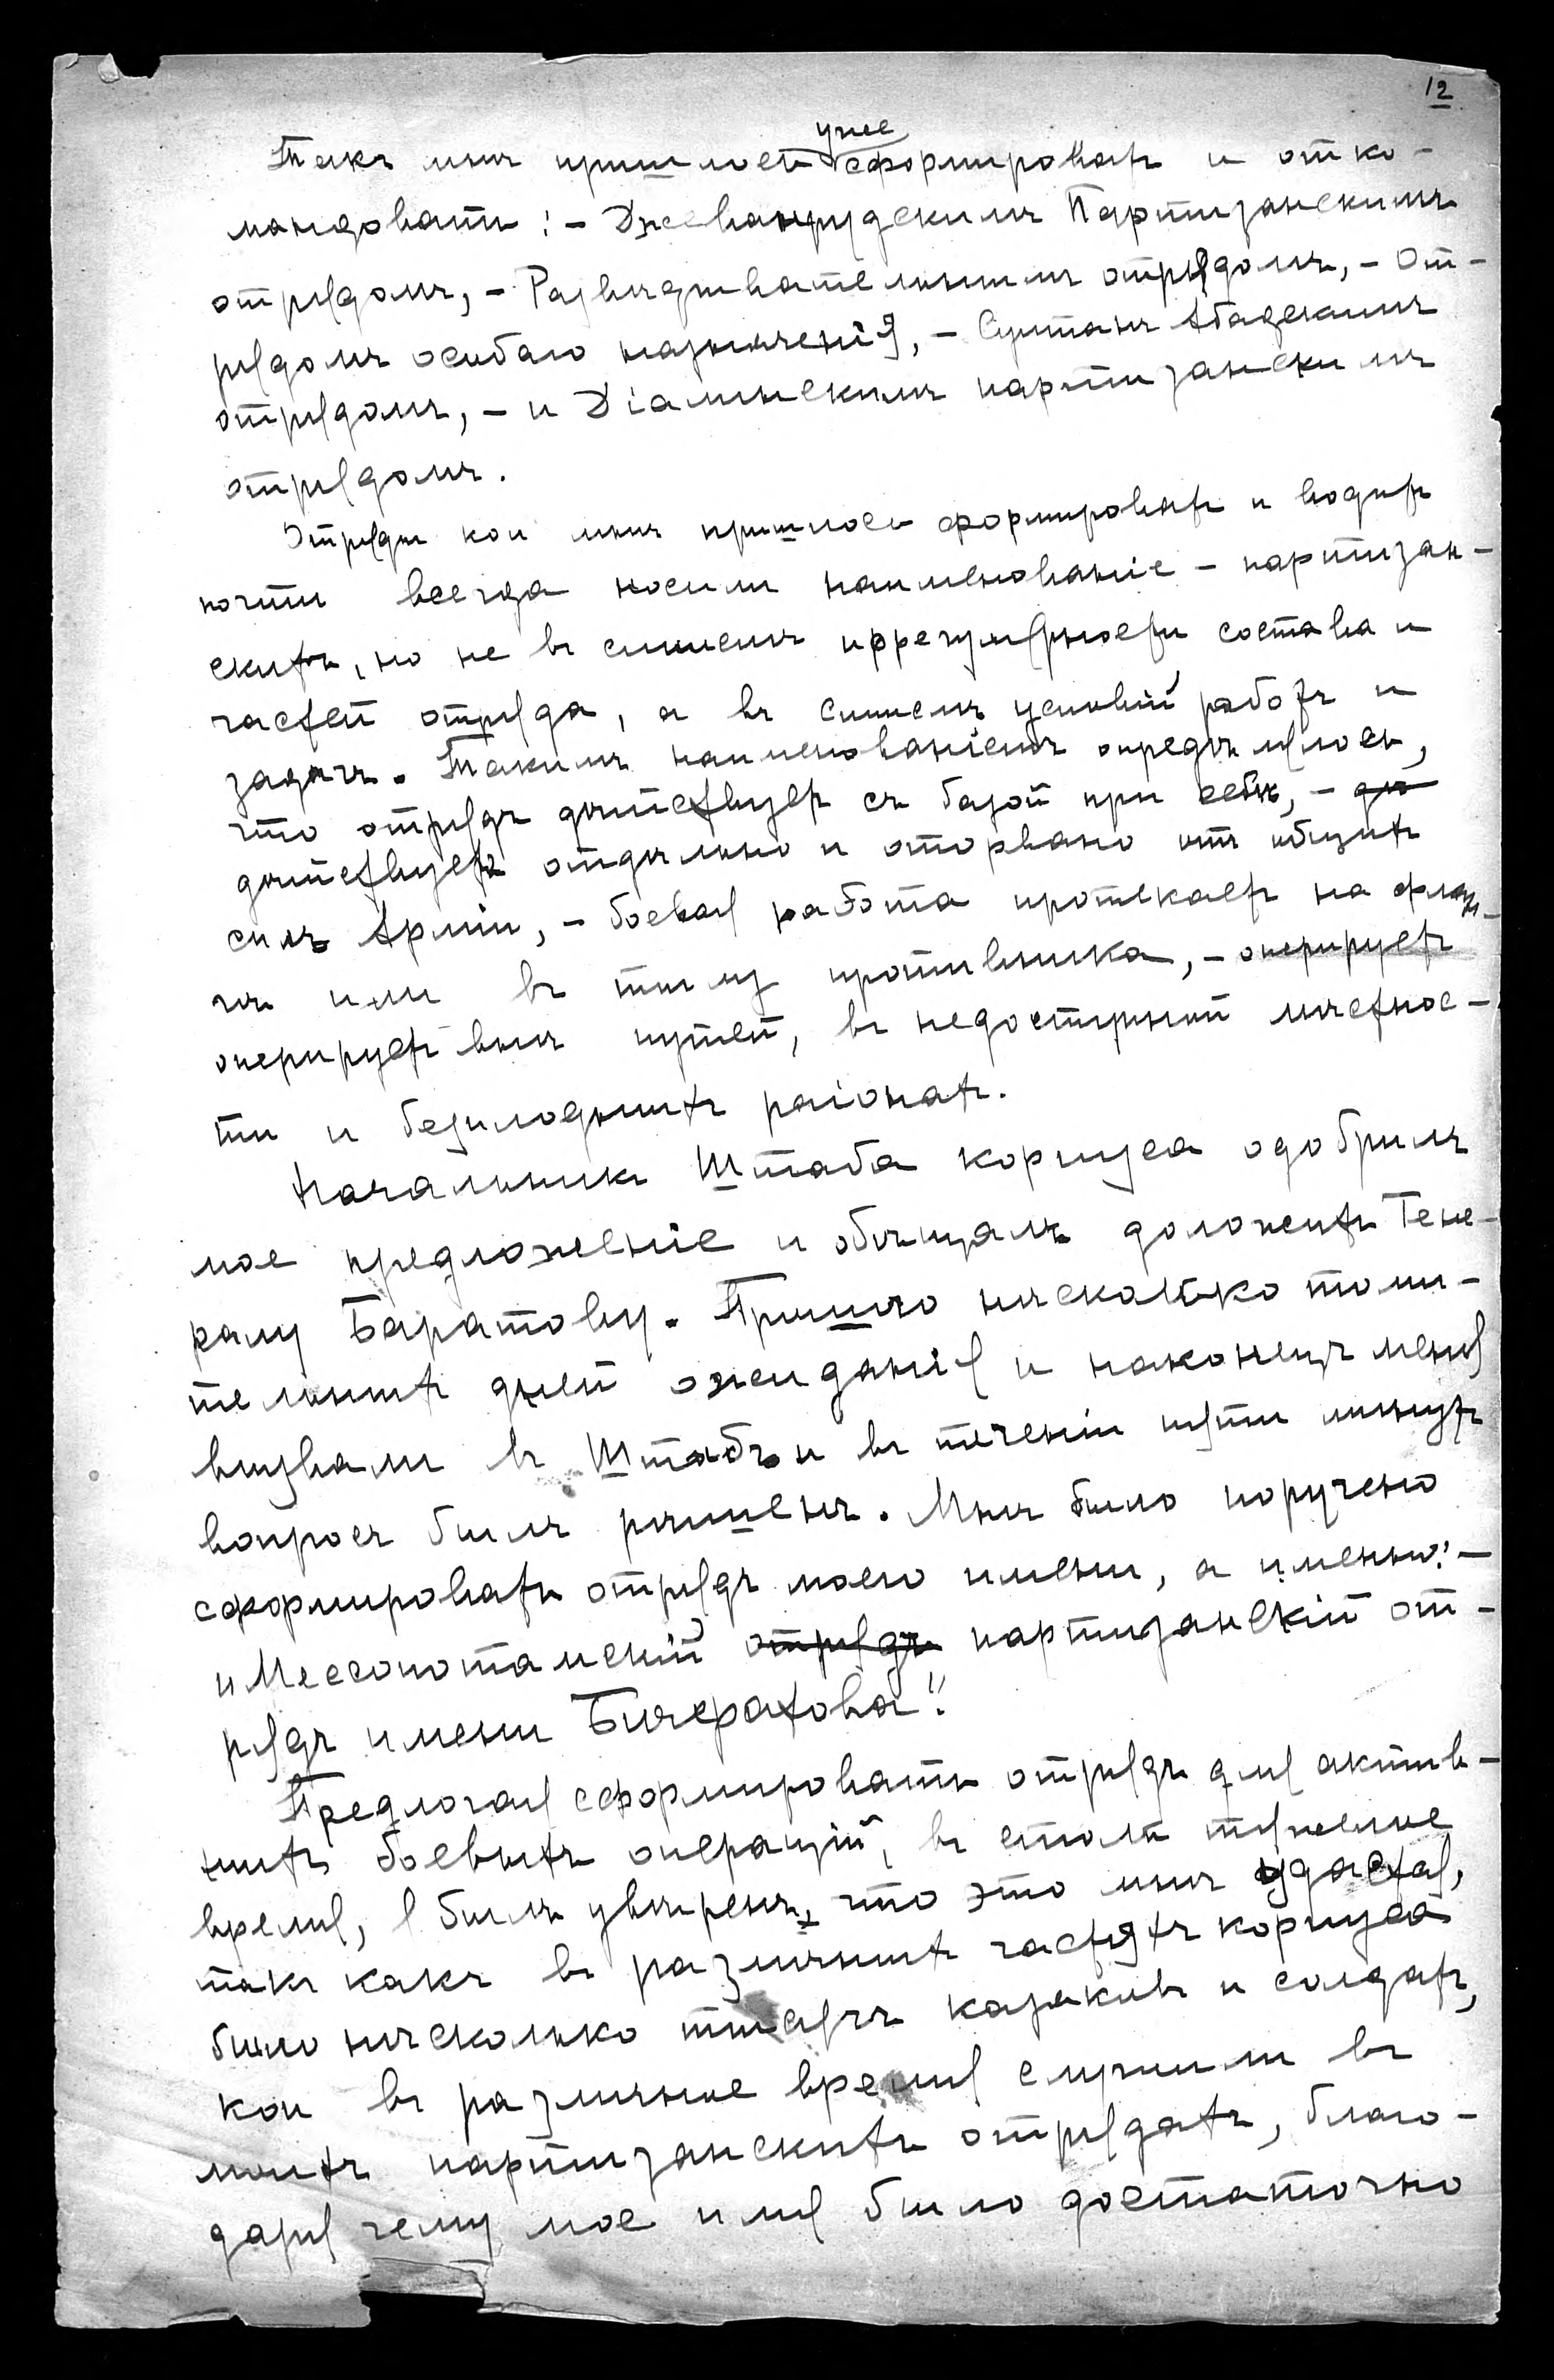 12
уже
Такъ мнѣ пришлось сформировать и отко-
мандовать: - Джеванрудскимъ Партизанскимъ
отрядомъ, - Развѣдывательнымъ отрядомъ, - От-
рядомъ особаго назначенія, - Султанъ Абадскимъ
отрядомъ, - и Діалинскимъ партизанскимъ
отрядомъ.
Отряды кои мнѣ пришлось формировать и водить
почти всегда носили наименованіе - партизан-
скихъ, но не въ смыслѣ иррегулярности состава и
частей отряда, а въ смыслѣ условій работъ и
задачъ. Такимъ наименованіемъ опредѣлялось,
что отрядъ дѣйствуетъ съ базой при себѣ, - дѣ
дѣйствуетъ отдѣльно и оторвано отъ общихъ
силъ Арміи, - боевая работа протекаетъ на флан-
гѣ или въ тылу противника, - оперируетъ
оперируетъ внѣ путей, въ недоступной мѣстнос-
ти и безплодныхъ раіонахъ.
Начальникъ Штаба корпуса одобрилъ
мое предложеніе и обѣщалъ доложить Гене-
ралу Баратову. Прошло нѣсколько томи-
тельныхъ дней ожиданія и наконецъ меня
вызвали въ Штабъ и въ теченіи пяти минутъ
вопросъ былъ рѣшенъ. Мнѣ было поручено
сформировать отрядъ моего имени, а именно: -
"Мессопотамскій отрядъ партизанскій от-
рядъ имени Бичерахова".
Предлогая сформировать отрядъ для актив-
ныхъ боевыхъ операцій, въ столь тяжелое
время, я былъ увѣренъ, что это мнѣ удастся,
такъ какъ въ различныхъ частяхъ корпуса
было нѣсколько тысячъ казаковъ и солдатъ,
кои въ различное время служили въ
моихъ партизанскихъ отрядахъ, благо-
даря чему мое имя было достаточно